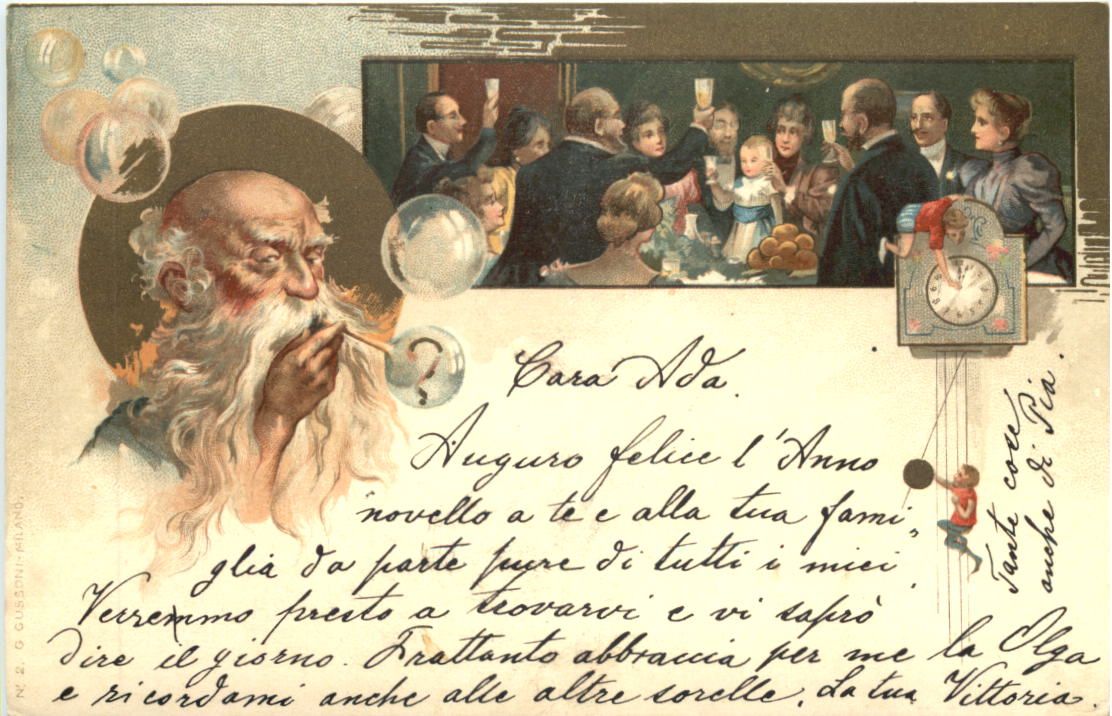 ?
Cara Ada.
Auguro felice l'Anno
novello a te e alla tua fami„
glia da parte pure di tutti i miei.
Verremmo presto a trovarvi e vi saprò
dire il giorno. Frattanto abbraccia per me la Olga
e ricordami anche alle altre sorelle. La tua Vittoria.
Tante cose
anche di Pia.
N. 2. G. GUSSONI - MILANO.